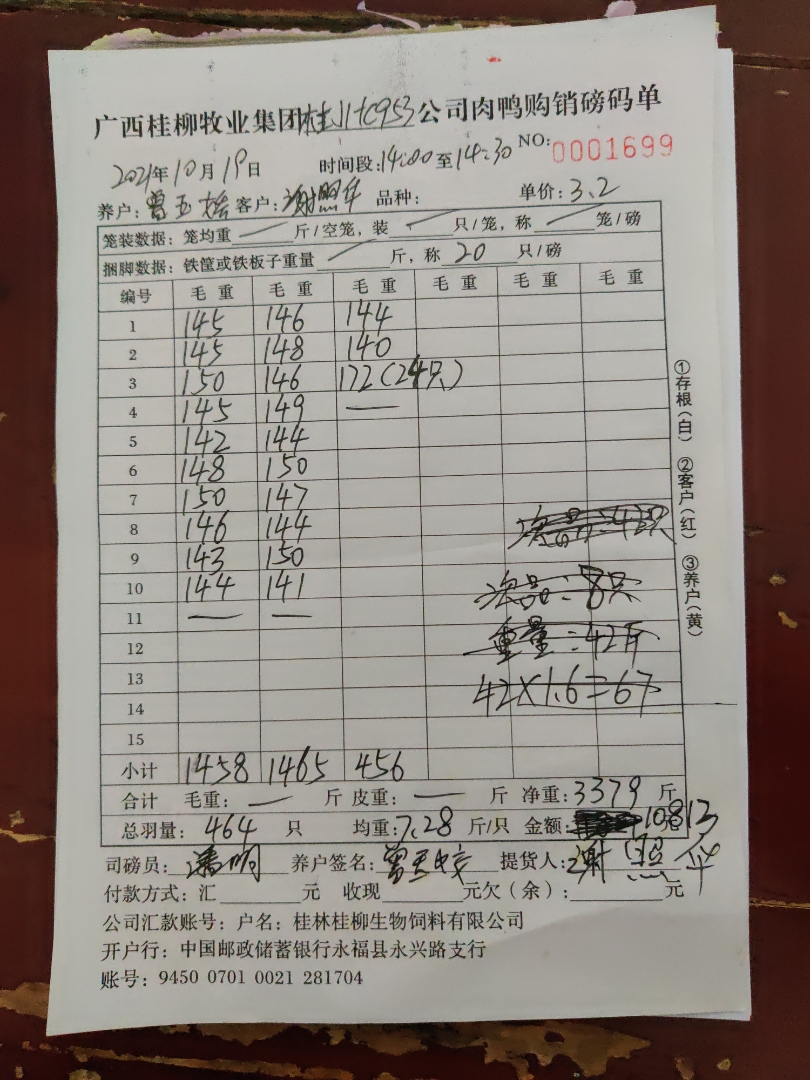 广西桂柳牧业集团桂川tc953公司肉鸭购销磅码单
NO: 0001699
2021年10月19日 时间段:14:00至14:30
养户: 曾玉 客户: 谢照华 品种: 单价:3.2
笼装数据: 笼均重 — 斤/空笼, 装 — 只/笼, 称 — 笼/磅
捆脚数据: 铁筐或铁板子重量 — 斤, 称 20 只/磅
编号 毛重 毛重 毛重 毛重 毛重 毛重
1 145 146 144
2 145 148 140
3 150 146 172(24只)
4 145 149 —
5 142 144
6 148 150
7 150 147
8 146 144
9 143 150
10 144 141
11 — —
12
13
14
15
次品:42只
次品:8只
重量:42斤
42×1.6=67
小计 1458 1465 456
合计 毛重: — 斤 皮重: — 斤 净重:3379 斤
总羽量: 464 只 均重:7.28 斤/只 金额: 10813元
司磅员: 潘明 养户签名: 曾玉 提货人: 谢照华
付款方式: 汇 元 收现 元欠(余): 元
公司汇款账号: 户名: 桂林桂柳生物饲料有限公司
开户行: 中国邮政储蓄银行永福县永兴路支行
账号: 9450 0701 0021 281704
①存根(白) ②客户(红) ③养户(黄)